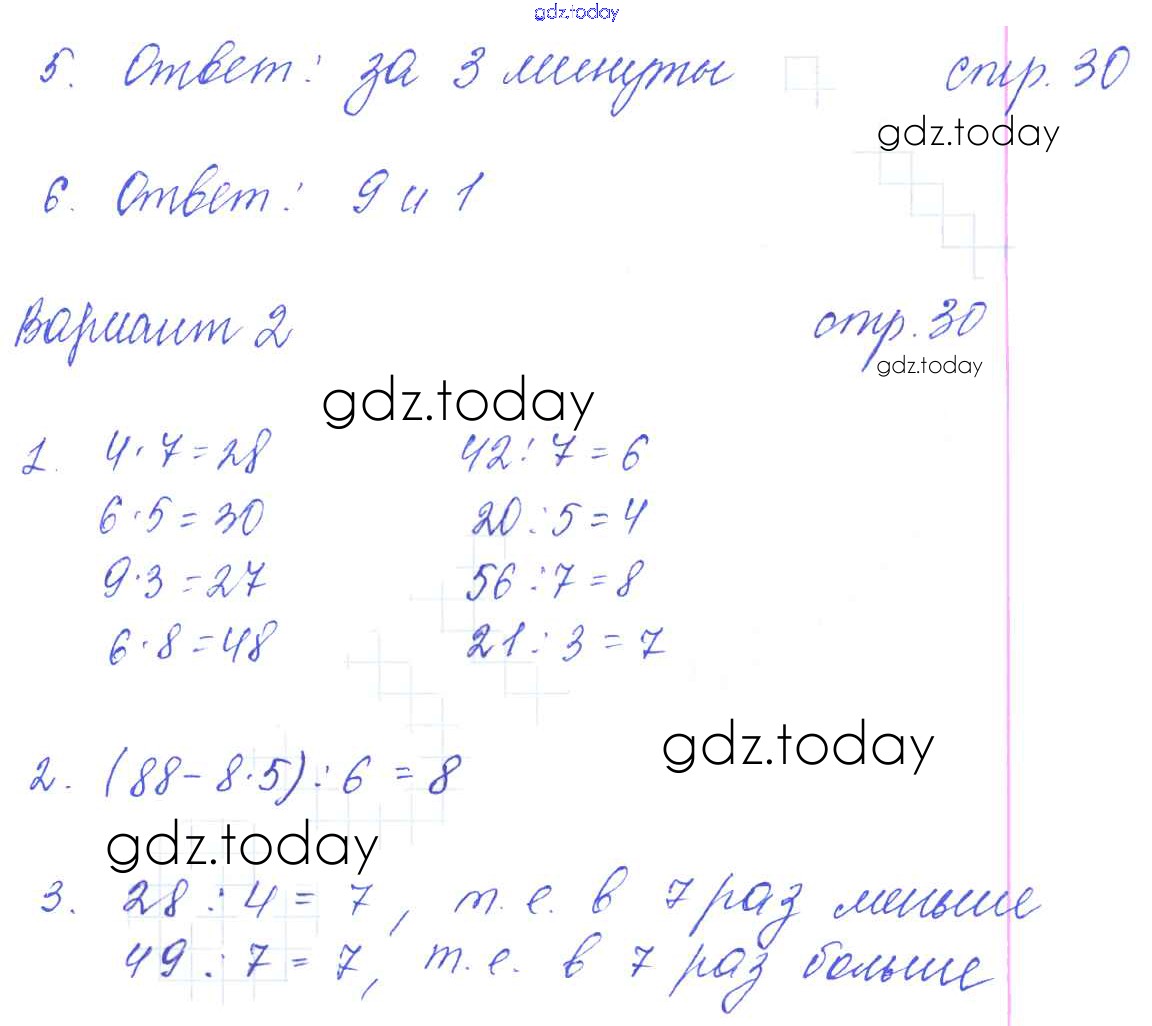 gdz.today
5. Ответ: за 3 минуты стр. 30
gdz.today
6. Ответ: 9 и 1
Вариант 2 стр. 30
gdz.today
gdz.today
1. 4·7=28 42:7=6
6·5=30 20:5=4
9·3=27 56:7=8
6·8=48 21:3=7
gdz.today
2. (88-8·5):6=8
gdz.today
3. 28:4=7, т.е. в 7 раз меньше
49:7=7, т.е. в 7 раз больше